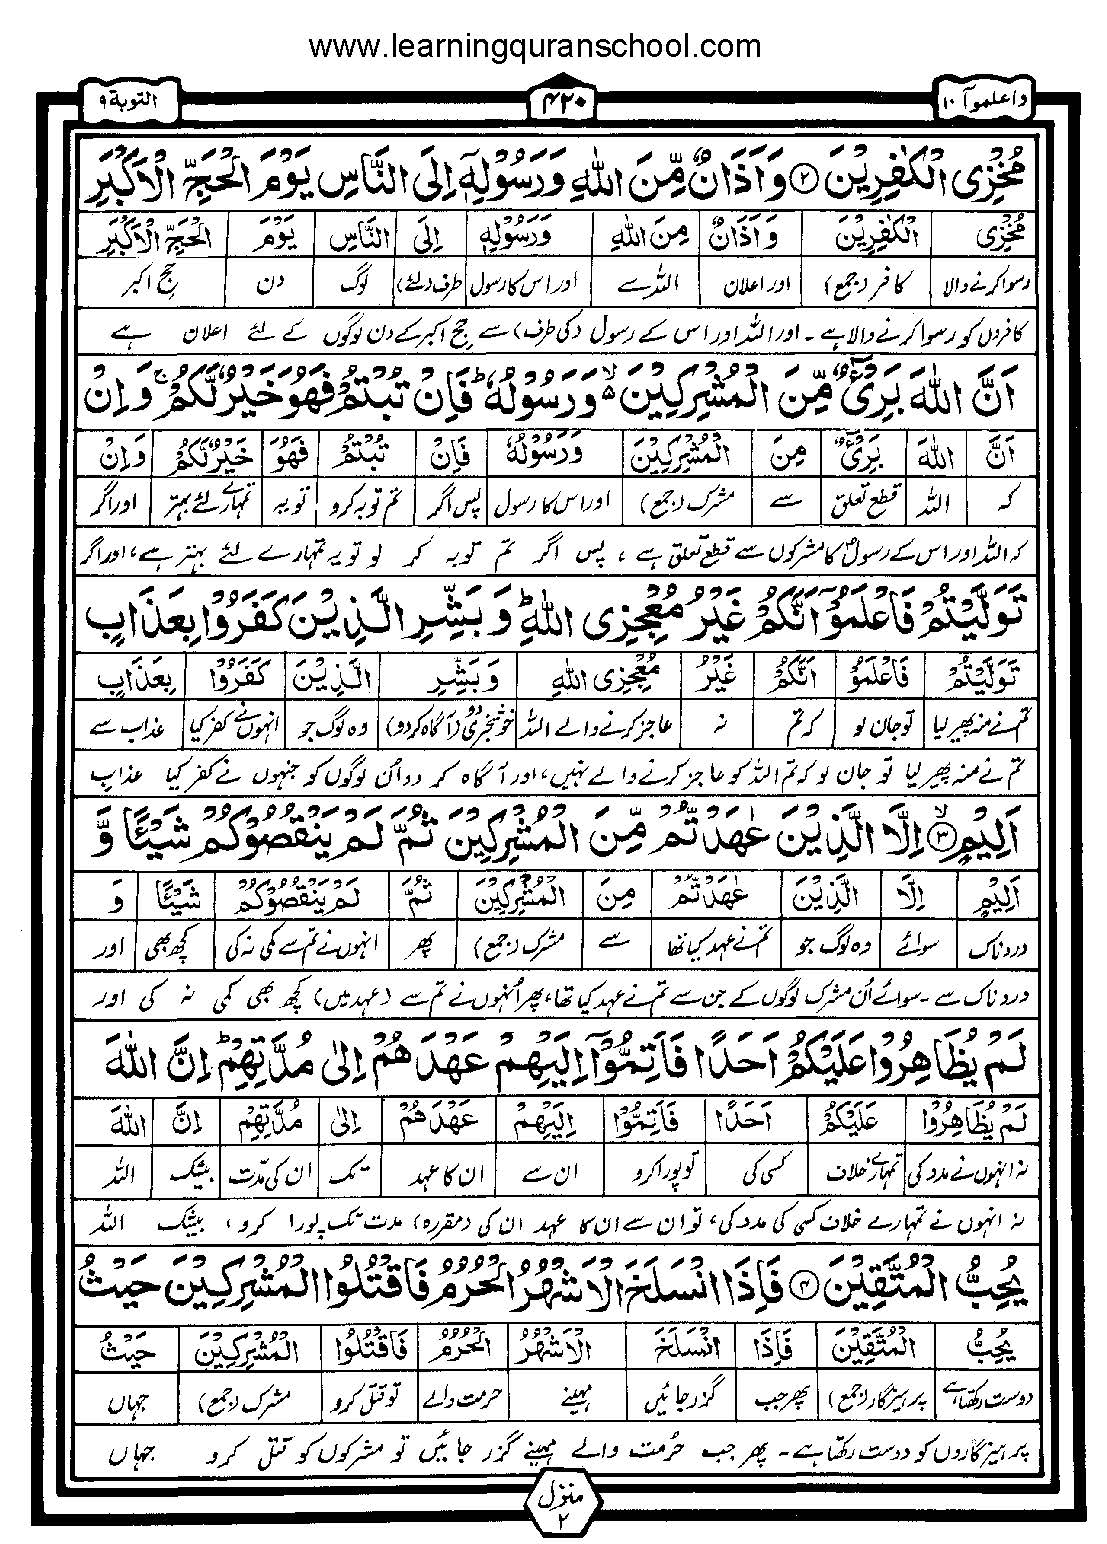 www.learningquranschool.com
واعلموآ ١٠
۴۲۰
التوبة ٩
مُخْزِی الْكٰفِرِيْنَ ﴿۲﴾ وَاَذَانٌ مِّنَ اللّٰهِ وَرَسُوْلِهٖٓ اِلَی النَّاسِ يَوْمَ الْحَجِّ الْاَكْبَرِ
مُخْزِی الْكٰفِرِيْنَ وَاَذَانٌ مِنَ اللّٰهِ وَرَسُوْلِهٖ اِلَی النَّاسِ يَوْمَ الْحَجِّ الْاَكْبَرِ
رسوا کرنے والا کافر (جمع) اور اعلان اللہ سے اور اس کا رسول طرف (لئے) لوگ دن حج اکبر
کافروں کو رسوا کرنے والا ہے ۔ اور اللہ اور اس کے رسول (کی طرف) سے حج اکبر کے دن لوگوں کے لئے اعلان ہے
اَنَّ اللّٰهَ بَرِیْٓءٌ مِّنَ الْمُشْرِكِيْنَ ۙ۬ وَرَسُوْلُهٗ ؕ فَاِنْ تُبْتُمْ فَهُوَ خَيْرٌ لَّكُمْ ۚ وَاِنْ
اَنَّ اللّٰهَ بَرِیْٓءٌ مِنَ الْمُشْرِكِيْنَ وَرَسُوْلُهٗ فَاِنْ تُبْتُمْ فَهُوَ خَيْرٌ لَّكُمْ وَاِنْ
کہ اللہ قطع تعلق سے مشرک (جمع) اور اس کا رسول پس اگر تم توبہ کرو تو یہ تمہارے لئے بہتر اور اگر
کہ اللہ اور اس کے رسول کا مشرکوں سے قطع تعلق ہے ، پس اگر تم توبہ کر لو تو یہ تمہارے لئے بہتر ہے ، اور اگر
تَوَلَّيْتُمْ فَاعْلَمُوْٓا اَنَّكُمْ غَيْرُ مُعْجِزِی اللّٰهِ ؕ وَبَشِّرِ الَّذِيْنَ كَفَرُوْا بِعَذَابٍ
تَوَلَّيْتُمْ فَاعْلَمُوْٓا اَنَّكُمْ غَيْرُ مُعْجِزِی اللّٰهِ وَبَشِّرِ الَّذِيْنَ كَفَرُوْا بِعَذَابٍ
تم نے منہ پھیر لیا تو جان لو کہ تم نہ عاجز کرنے والے اللہ خوشخبری دو (آگاہ کردو) وہ لوگ جو انہوں نے کفر کیا عذاب سے
تم نے منہ پھیر لیا تو جان لو کہ تم اللہ کو عاجز کرنے والے نہیں ، اور آگاہ کر دو ان لوگوں کو جنہوں نے کفر کیا عذاب
اَلِيْمٍ ﴿۳﴾ۙ اِلَّا الَّذِيْنَ عٰهَدْتُّمْ مِّنَ الْمُشْرِكِيْنَ ثُمَّ لَمْ يَنْقُصُوْكُمْ شَيْئًا وَّ
اَلِيْمٍ اِلَّا الَّذِيْنَ عٰهَدْتُّمْ مِنَ الْمُشْرِكِيْنَ ثُمَّ لَمْ يَنْقُصُوْكُمْ شَيْئًا وَ
دردناک سوائے وہ لوگ جو تم نے عہد کیا تھا سے مشرک (جمع) پھر انہوں نے تم سے کمی نہ کی کچھ بھی اور
دردناک سے ۔ سوائے اُن مشرک لوگوں کے جن سے تم نے عہد کیا تھا ، پھر اُنہوں نے تم سے (عہد میں) کچھ بھی کمی نہ کی اور
لَمْ يُظَاهِرُوْا عَلَيْكُمْ اَحَدًا فَاَتِمُّوْٓا اِلَيْهِمْ عَهْدَهُمْ اِلٰی مُدَّتِهِمْ ؕ اِنَّ اللّٰهَ
لَمْ يُظَاهِرُوْا عَلَيْكُمْ اَحَدًا فَاَتِمُّوْٓا اِلَيْهِمْ عَهْدَهُمْ اِلٰی مُدَّتِهِمْ اِنَّ اللّٰهَ
نہ انہوں نے مدد کی تمہارے خلاف کسی کی تو پورا کرو ان سے ان کا عہد تک ان کی مدّت بیشک اللہ
نہ انہوں نے تمہارے خلاف کسی کی مدد کی ، تو ان سے ان کا عہد ان کی (مقررہ) مدت تک پورا کرو ، بیشک اللہ
يُحِبُّ الْمُتَّقِيْنَ ﴿۴﴾ فَاِذَا انْسَلَخَ الْاَشْهُرُ الْحُرُمُ فَاقْتُلُوا الْمُشْرِكِيْنَ حَيْثُ
يُحِبُّ الْمُتَّقِيْنَ فَاِذَا انْسَلَخَ الْاَشْهُرُ الْحُرُمُ فَاقْتُلُوا الْمُشْرِكِيْنَ حَيْثُ
دوست رکھتا ہے پرہیزگار (جمع) پھر جب گزر جائیں مہینے حرمت والے تو قتل کرو مشرک (جمع) جہاں
پرہیزگاروں کو دوست رکھتا ہے ۔ پھر جب حُرمت والے مہینے گزر جائیں تو مشرکوں کو قتل کرو جہاں
منزل
۲